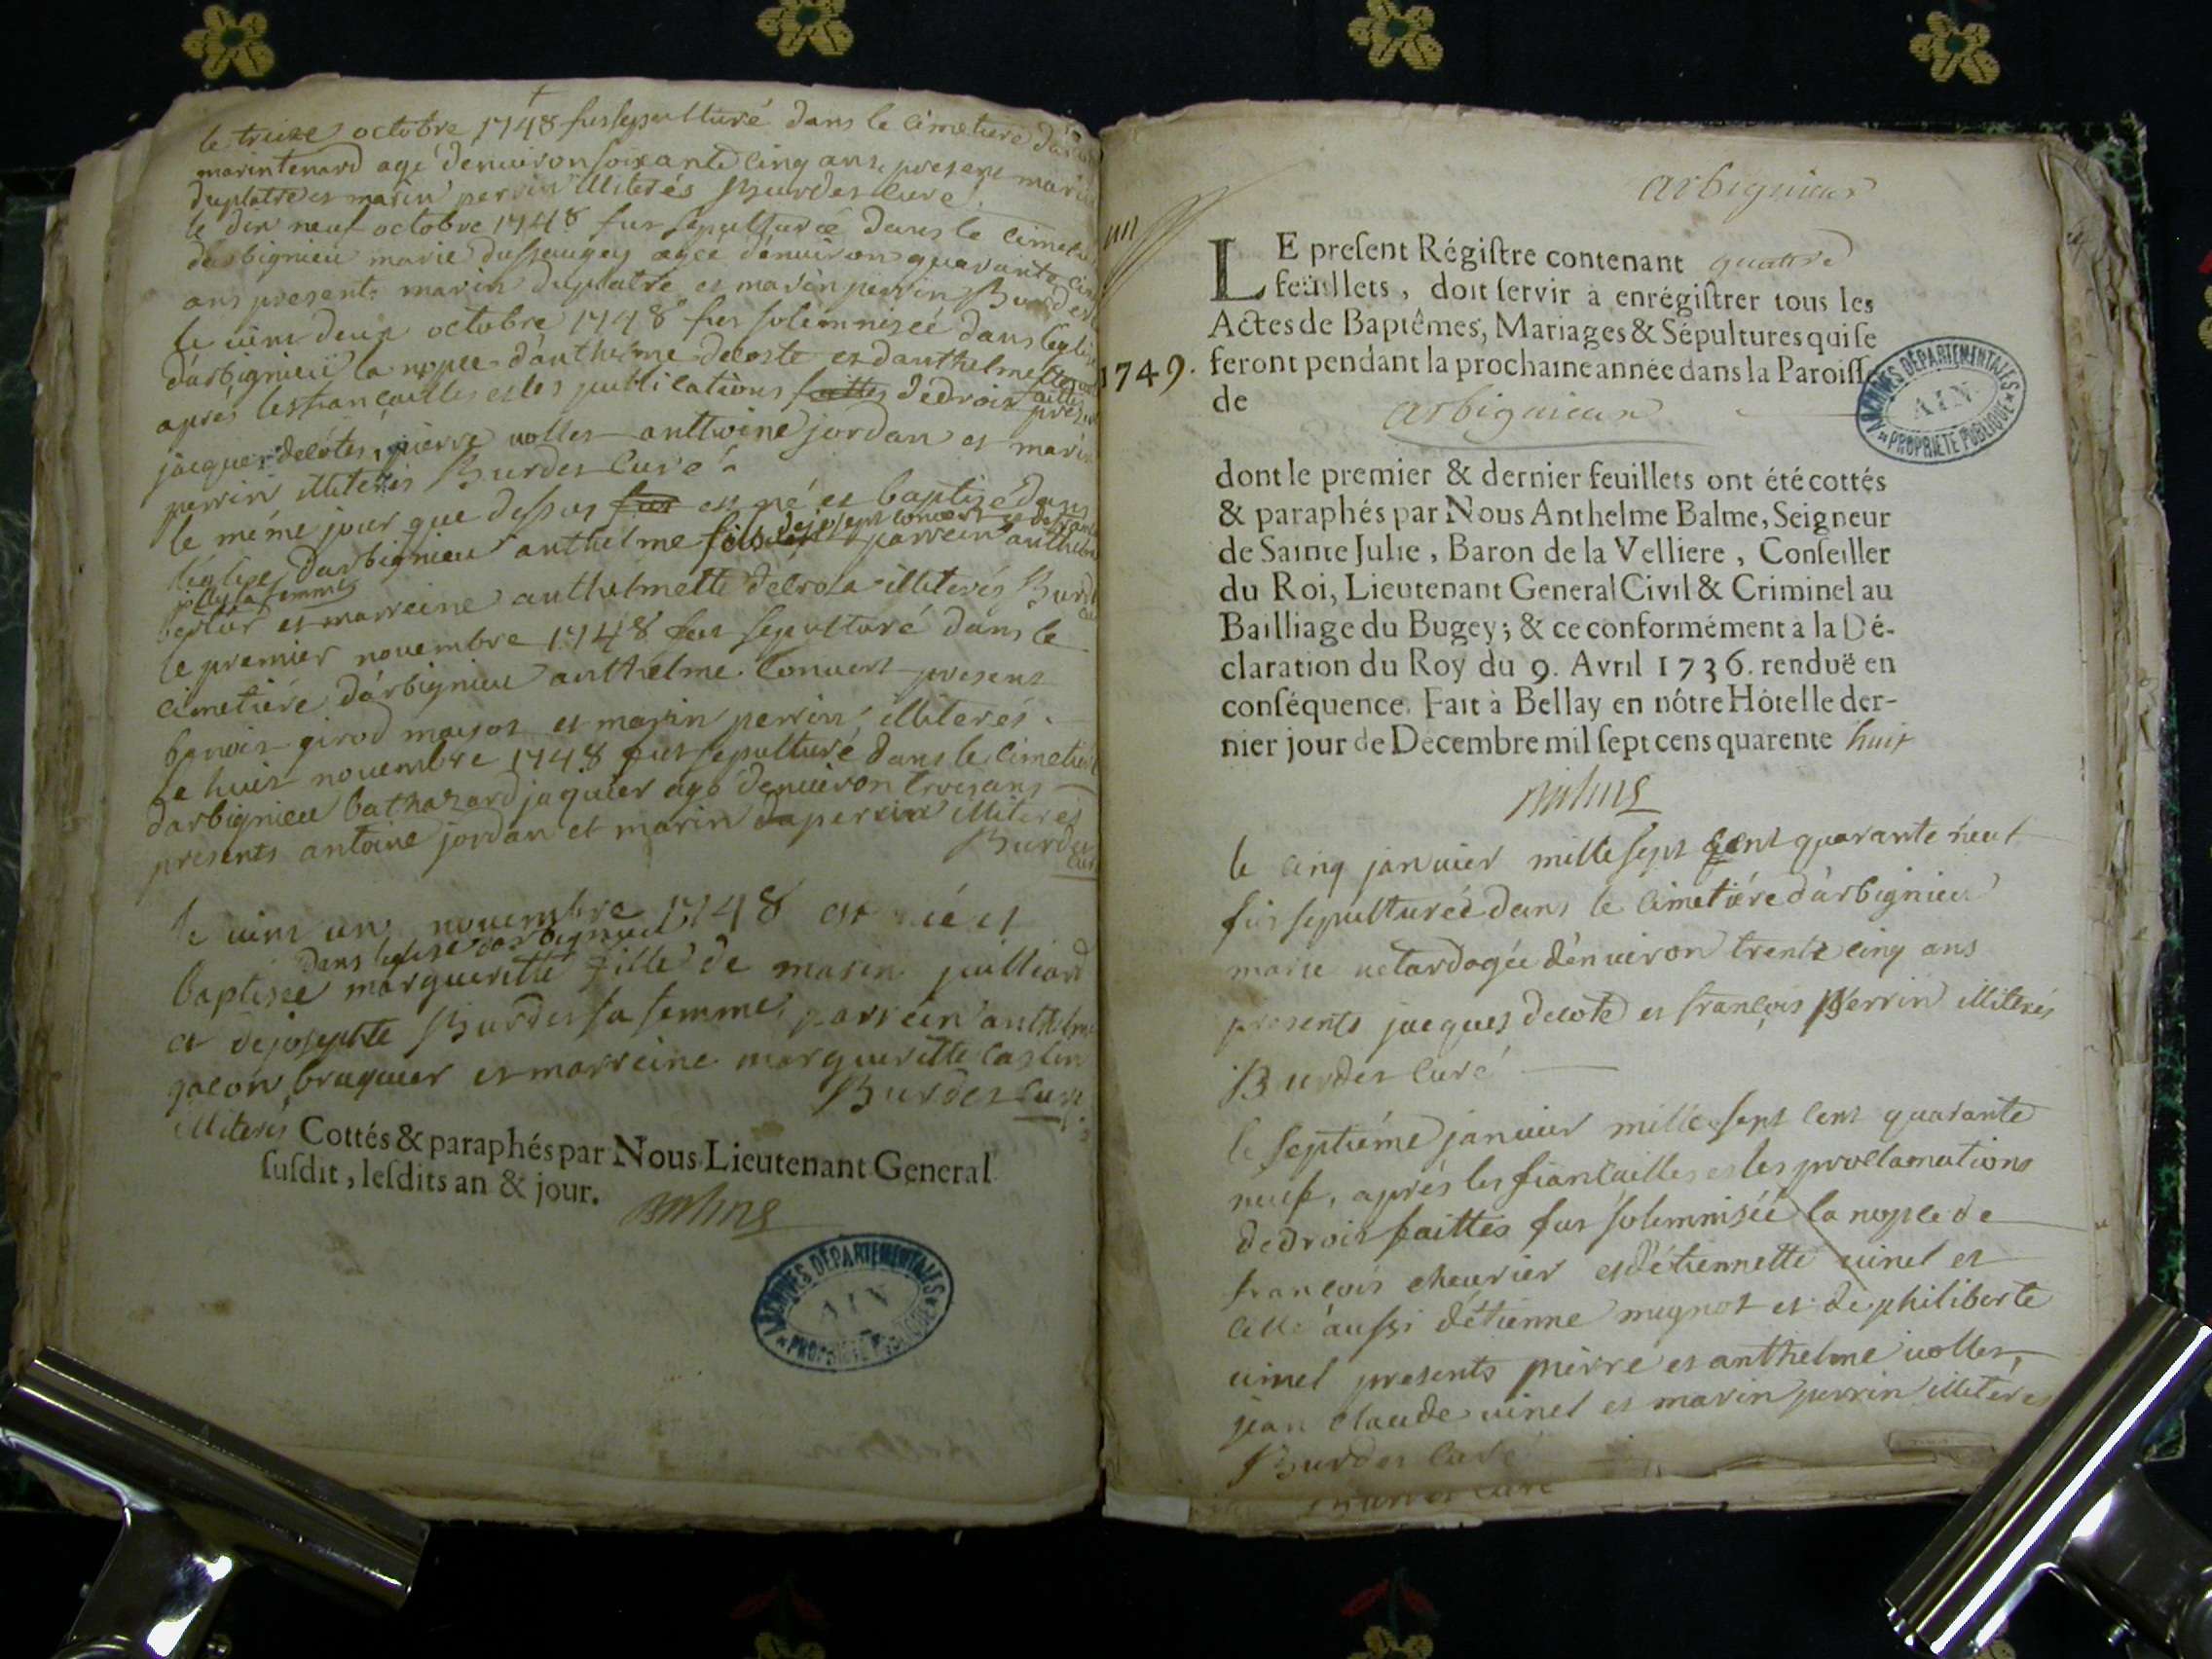 le treize octobre 1748 fus sepulturé dans le cimetiere
marin tenard agé denuiron soixante cinq ans, presens marin
duplatre et marin perrin illiterés Burdet curé
le dix neuf octobre 1748 fus sepulturée dans le
darbignieu marie agée denuiron quarante cinq
ans presents marin duplatre et marin perrin Burdet
le uint deux octobre 1748 fus solemnisée dans leglise
darbignieu la nopce danthelme decoste et danthelmette
apres les fiancailles et les publications de droit faittes
jacques decotes, pierre uollet anthoine jordan et marin
perrin illiterés Burdet curé
le même jour que dessus est né et baptisé dans
léglise darbignieu anthelme fils de joseph conuert parrein anthelme
sa femme
et marreine anthelmette illiterés
le premier nouembre 1748 fut sepulturé dans le
cimetiére dárbignieu anthelme Conuert present
benoit girod et marin perrin illiterés
le huit nouembre 1748 fut sepulturé dans le cimetiére
darbignieu bathazard jaquier agé denuiron trois ans
presents antoine jordan et marin perrin illiterés
Burdet
curé
le uint un nouembre 1748 est née et
dans leglise darbignieu
baptisée margueritte fille de marin juilliard
et de josephte Burdet sa femme, parrein anthelme
galon bruquier et marreine margueritte
illiterés Burdet Curé
Cottés & paraphés par Nous Lieutenant General
ſuſdit, leſdits an & jour.
Balme
ARCHIVES DÉPARTEMENTALES
AIN
PROPRIÉTÉ PUBLIQUE
arbignieux
LE preſent Régiſtre contenant quattre
feüillets, doit ſervir à enrégiſtrer tous les
Actes de Baptêmes, Mariages & Sépultures qui ſe
1749. feront pendant la prochaine année dans la Paroiſſe
de arbignieux
ARCHIVES DÉPARTEMENTALES
AIN
PROPRIÉTÉ PUBLIQUE
dont le premier & dernier feuillets ont été cottés
& paraphés par Nous Anthelme Balme, Seigneur
de Sainte Julie, Baron de la Velliere, Conſeiller
du Roi, Lieutenant General Civil & Criminel au
Bailliage du Bugey; & ce conformément à la Dé-
claration du Roy du 9. Avril 1736. renduë en
conſéquence. Fait à Bellay en nôtre Hôtel le der-
nier jour de Décembre mil ſept cens quarente huit
Balme
le cinq januier mille sept cent quarante neuf
fus sepulturée dans le cimetiére dárbignieu
marie uetard agée dénuiron trente cinq ans
presents jacques decote et françois Perrin illiterés
Burdet curé
le septiéme januier mille sept cent quarante
neuf, aprés les fiancailles et les proclamations
de droit faittes fut solemnisée la nopce de
françois cheurier et détiennette uinet et
celle aussi détienne mugnot et de philiberte
uinet presents pierre et anthelme uollet,
jean claude uinet et marin perrin illiteres
Burdet curé